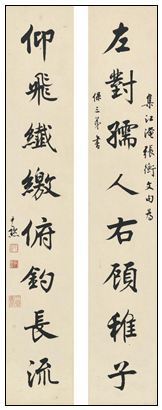 左對孺人右顧稚子
集江淹張衡文句為
書
仰飛纖繳俯釣長流
尹默